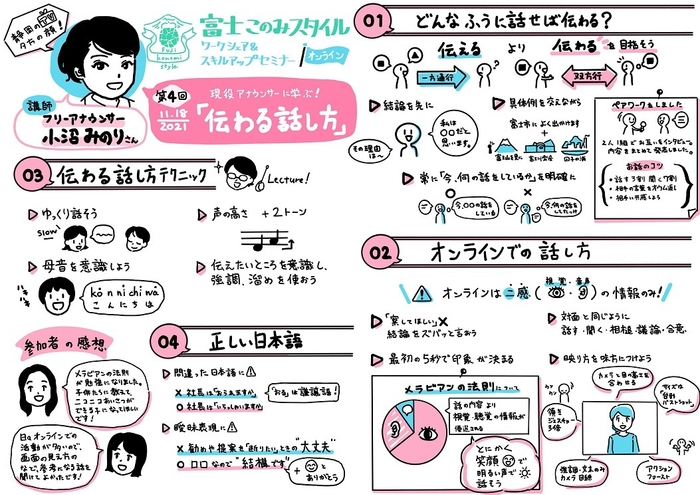 静岡の
夕方の顔!
Fuji
konomi
style
富士このみスタイル
ワークシェア&
スキルアップセミナー オンライン
講師
フリーアナウンサー
小沼 みのりさん
第4回
11.18
2021
現役アナウンサーに学ぶ!
「伝わる話し方」
01 どんなふうに話せば伝わる?
伝える より 伝わる を目指そう
一方通行
双方行
結論を先に
その理由
は〜
私は
○○だと
思います。
具体例を交えながら
富士市によく出かけます
+
常に「今、何の話をしているか」を明確に
今、○○の話を
している
今、何の話を
ペアワークをしました
2人1組でお互いをインタビュー。
内容をまとめて発表しました。
お話のコツ
・話す3割 聞く7割
・相手の言葉をオウム返し
02 オンラインでの話し方
オンラインは二感( 視覚・音声 )の情報のみ!
「察してほしい」×
結論をズバッと言おう
対面と同じように
話す・聞く・相槌・議論・合意
最初の5秒で印象が決まる
映り方を味方につけよう
メラビアンの法則について
話の内容より
視覚・聴覚の情報が
優送される
とにかく
笑顔で
明るい声で
話そう
カメラと目の高さを
合わせる
サイズは
自動
バストショット。
ウンウン
頷き
ジェスチャー
3倍
強調・文末のみ
カメラ目線
リアクション
ファースト
03 伝わる話し方テクニック
Lecture!
ゆっくり話そう
slow
声の高さ +2トーン
母音を意識しよう
ハキ
ハキ
kōnnichiwā
こんにちは
伝えたいところを意識し、
強調、溜めを使おう
参加者の感想
メラビアンの法則
が勉強になりました。
子供たちに教えて、
ニコニコあいさつが
できる子になってほしい
です!
日々オンラインでの
活動が多いので、
画面の見え方の
など、参考になる話を
聞けてよかったです!
04 正しい日本語
間違った日本語に
× 社長は「おられますか」
○ 社長は「いらっしゃいますか」
「おる」は謙譲語!
曖昧表現に
× 勧めや提案を「断りたい」ときの"大丈夫"
○ □□なので"結構です"
+
ありがとう